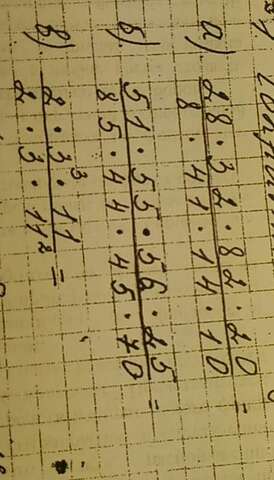 а) 28·32·82·20 =
8·41·14·10
б) 51·55·56·25 =
85·44·45·70
в) 2·3³·11 =
2·3·11²